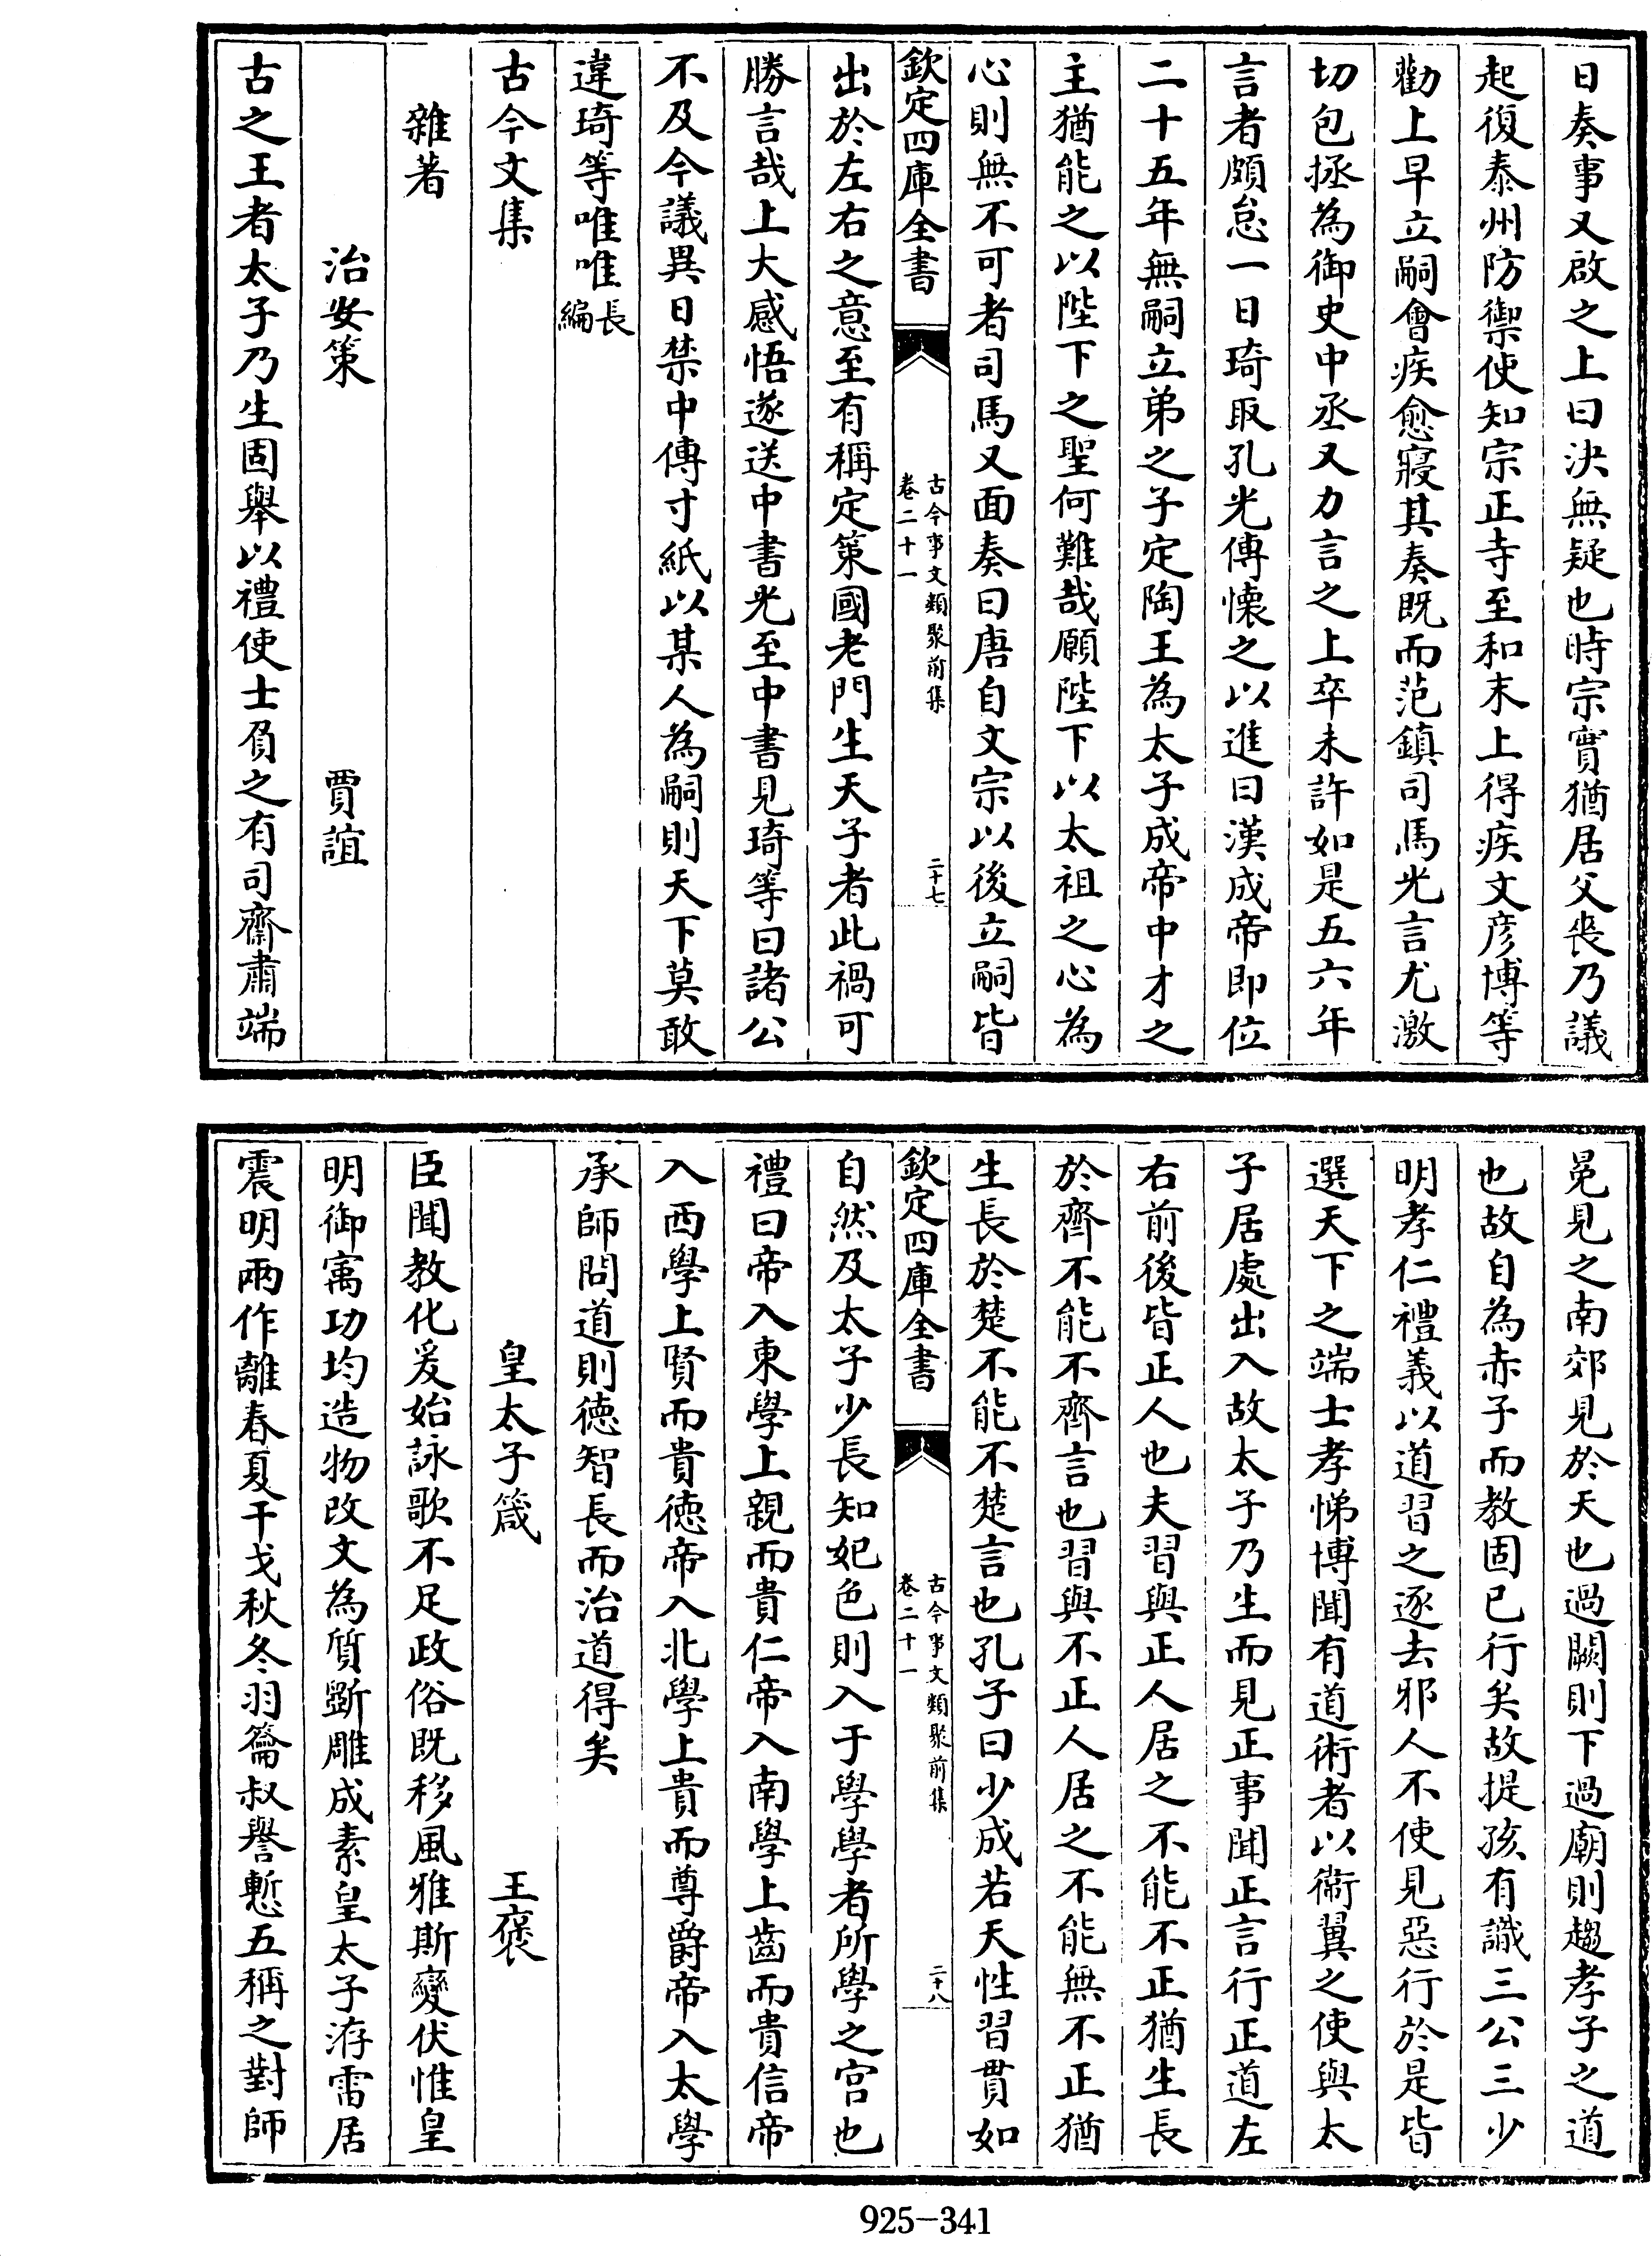 日奏事又啟之上曰決無疑也時宗實猶居父喪乃議
起復泰州防禦使知宗正寺至和末上得疾文彦博等
勸上早立嗣會疾愈寢其奏既而范鎮司馬光言尤激
切包拯為御史中丞又力言之上卒未許如是五六年
言者頗怠一日琦取孔光傳懐之以進曰漢成帝即位
二十五年無嗣立弟之子定陶王為太子成帝中才之
主猶能之以陛下之聖何難哉願陛下以太祖之心為
心則無不可者司馬又面奏曰唐自文宗以後立嗣皆
欽定四庫全書
古今事文類聚前集
卷二十一
二十七
出於左右之意至有稱定策國老門生天子者此禍可
勝言哉上大感悟遂送中書光至中書見琦等曰諸公
不及今議異日禁中傳寸紙以某人為嗣則天下莫敢
違琦等唯唯長編
古今文集
雜著
治安策 賈誼
古之王者太子乃生固舉以禮使士負之有司齋肅端
冕見之南郊見於天也過闕則下過廟則趨孝子之道
也故自為赤子而教固已行矣故提孩有識三公三少
明孝仁禮義以道習之逐去邪人不使見惡行於是皆
選天下之端士孝悌博聞有道術者以衞翼之使與太
子居處出入故太子乃生而見正事聞正言行正道左
右前後皆正人也夫習與正人居之不能不正猶生長
於齊不能不齊言也習與不正人居之不能無不正猶
生長於楚不能不楚言也孔子曰少成若天性習貫如
欽定四庫全書
古今事文類聚前集
卷二十一
二十八
自然及太子少長知妃色則入于學學者所學之宫也
禮曰帝入東學上親而貴仁帝入南學上齒而貴信帝
入西學上賢而貴徳帝入北學上貴而尊爵帝入太學
承師問道則徳智長而治道得矣
皇太子箴 王褒
臣聞教化爰始詠歌不足政俗既移風雅斯變伏惟皇
明御寓功均造物改文為質斲雕成素皇太子洊雷居
震明兩作離春夏干戈秋冬羽籥叔譽慙五稱之對師
925-341